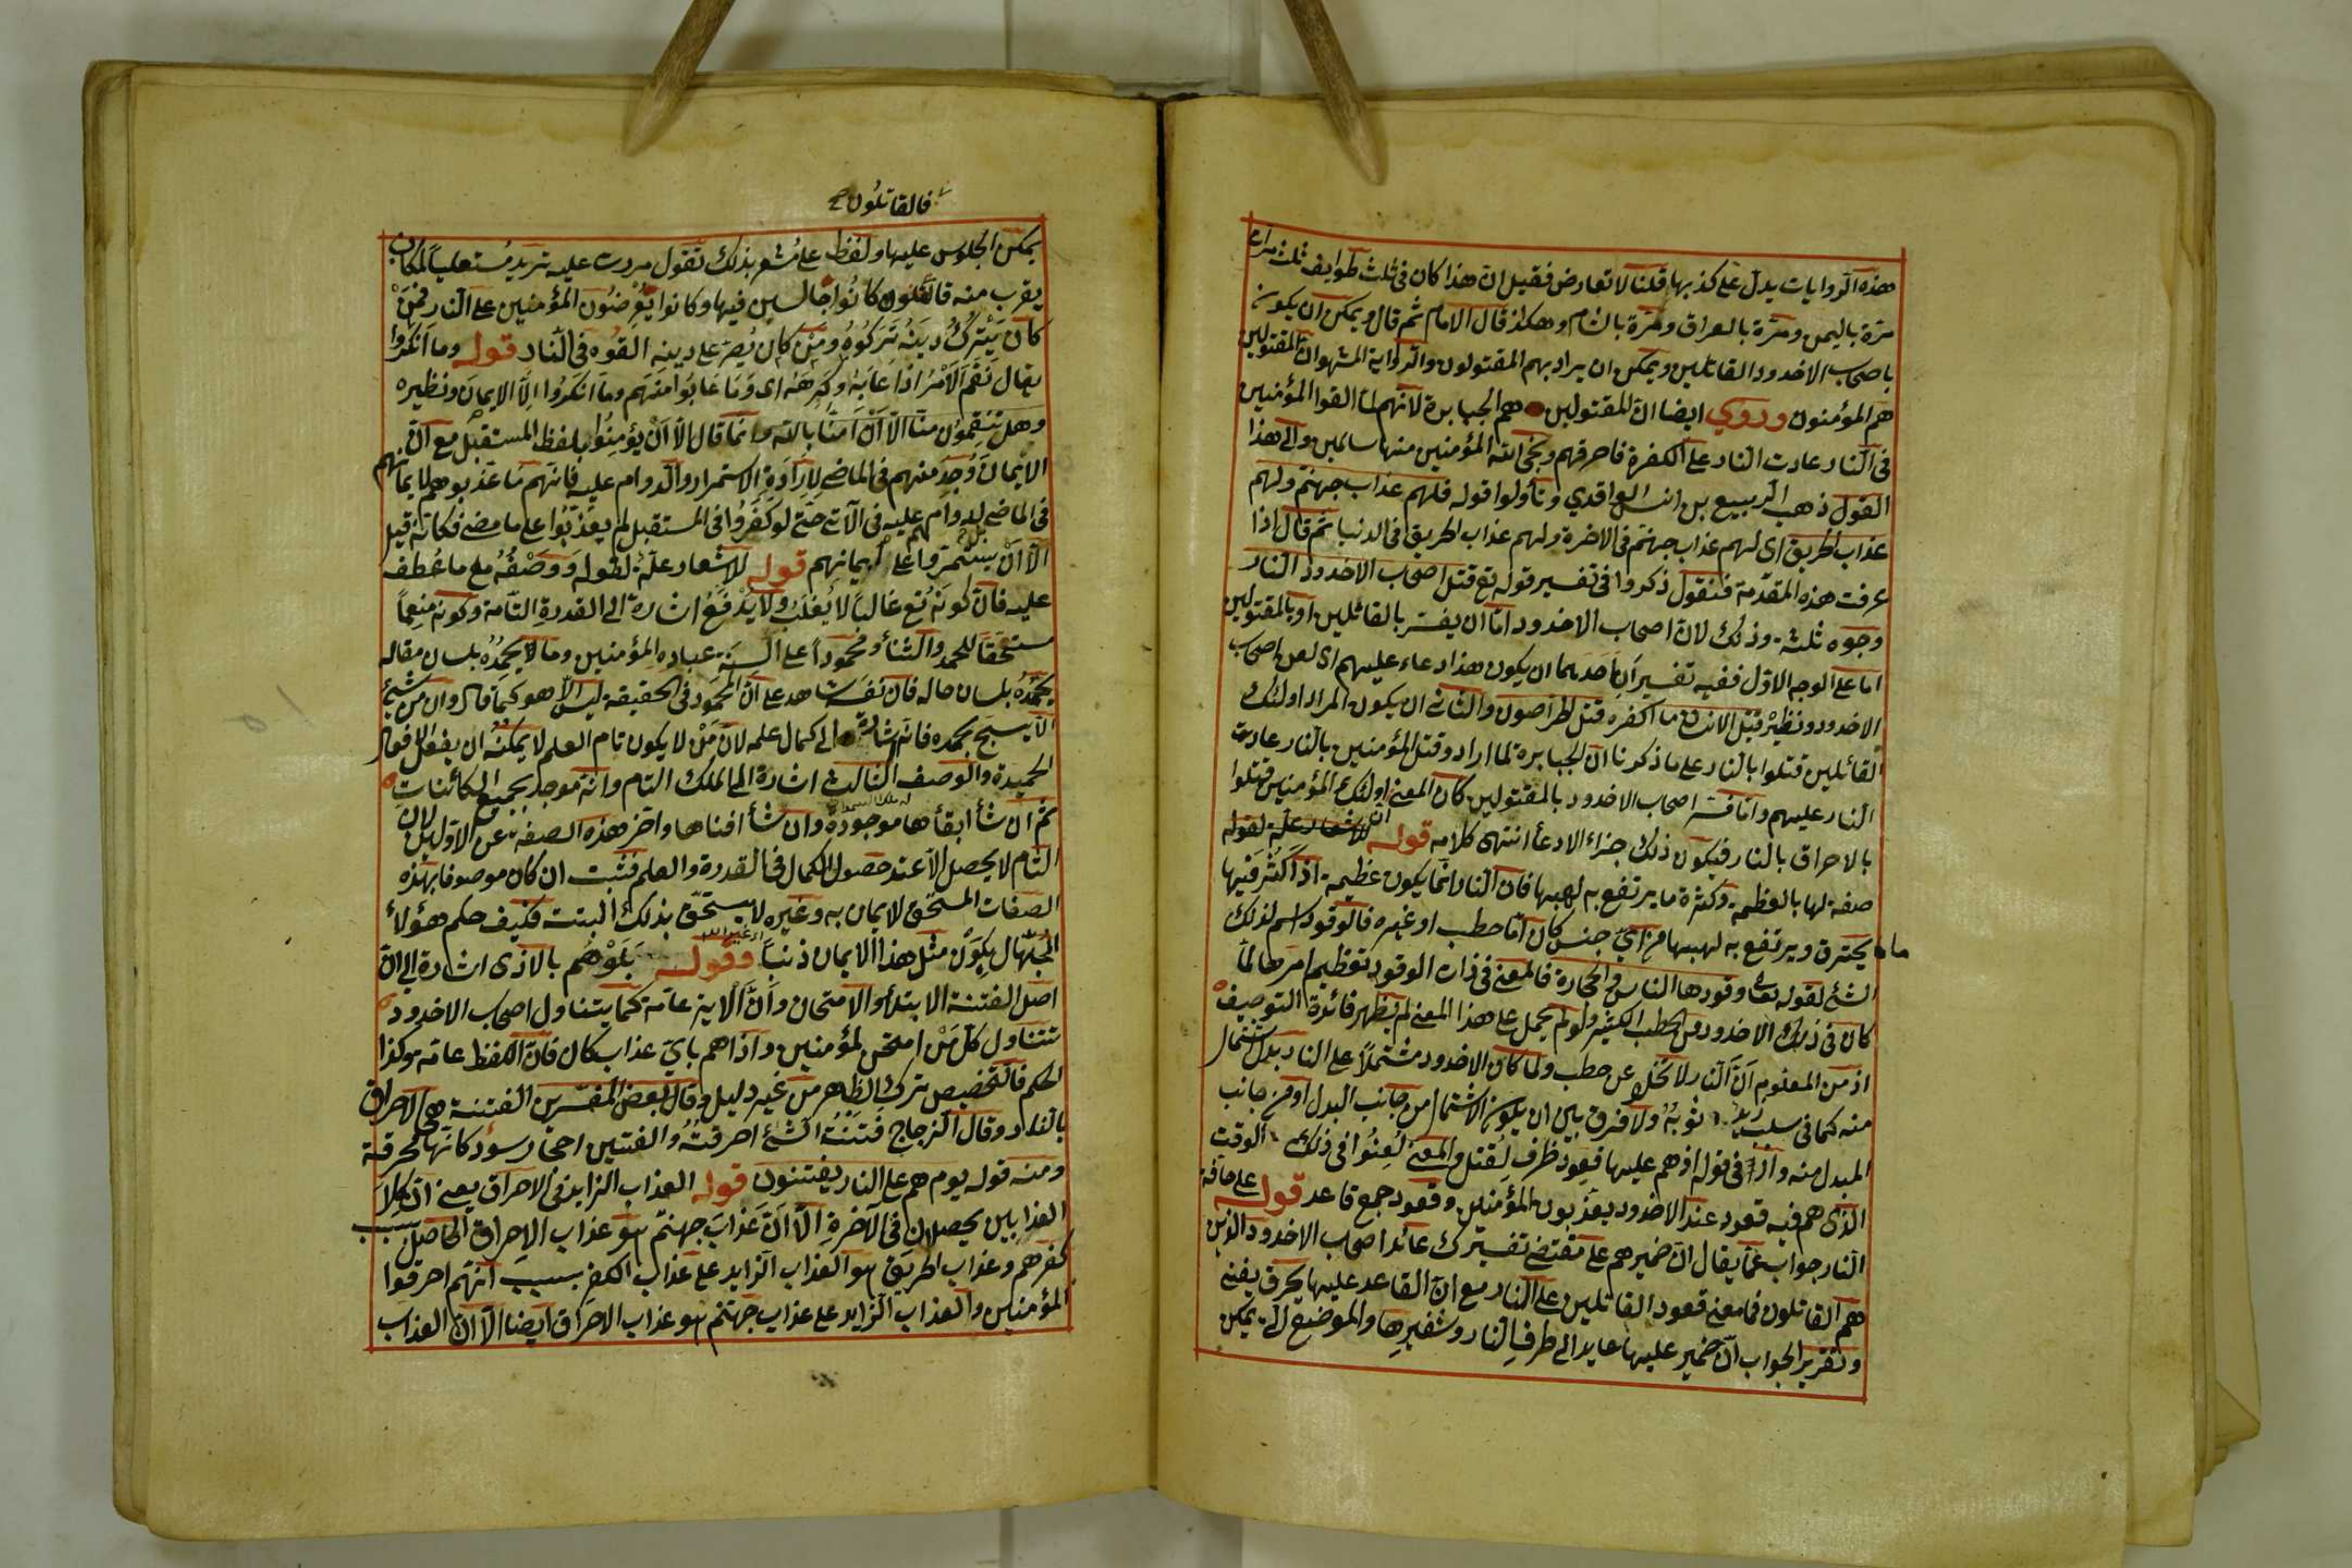 هذه الروايات يدل على كذبها قلنا لا تعارض فقيل ان هذا كان فى ثلث طوايف ثلث مرات
مرّة باليمن ومرّة بالعراق ومرّة بالشام وهكذا قال الامام ثم قال ويمكن ان يكون
باصحاب الاخدود القاتلين ويمكن ان يراد بهم المقتولون والرواية المشهو ان المقتولين
هم المؤمنون وروي ايضا ان المقتولين هم الجبابرة لانهم لما القوا المؤمنين
فى النار عادت النار على الكفرة فاحرقهم ونجى الله المؤمنين منها سالمين والى هذا
القول ذهب الربيع بن انس الواقدي وتأولوا قوله فلهم عذاب جهنم ولهم
عذاب الحريق اى لهم عذاب جهنم فى الاخرة ولهم عذاب الحريق فى الدنيا ثم قال اذا
عرفت هذه المقدّمة فنقول ذكروا فى تفسير قوله تع قتل اصحاب الاخدود النار
وجوه ثلثة وذلك لان اصحاب الاخدود امّا ان يفسّر بالقاتلين او بالمقتولين
اما على الوجه الاوّل ففيه تفسيرَانِ احدهما ان يكون هذا دعاء عليهم اى لعن اصحاب
الاخدود ونظيرْ قتل الانسان ما اكفره قتل الخراصون والثانى ان يكون المراد اولئك
القاتلين قتلوا بالنار على ما ذكرنا ان الجبابرة لما ارادوا قتل المؤمنين بالنار عادت
النار عليهم وامّا فسّر اصحاب الاخدود بالمقتولين كان المعنى ان اولئك المؤمنين قتلوا
بالاحراق بالنار فيكون ذلك جزاء الادعأ انتهى كلامه قوله للاشعار علّة لقوله
صفة لها بالعظمة وكثرة ما يرتفع به لهبها فان النار انما يكون عظيمة اذا كثر فيها
ما يحترق ويرتفع به لهبها من اىّ جنس كان امّا حطب او غيره فالوقود اسم لذلك
الشئ لقوله تعالى وقودها الناس والحجارة فالمعنى فى ذات الوقود تعظيم امرها لما
كان فى ذلك الاخدود من الحطب الكثير ولو لم يحمل على هذا المعنى لم يظهر فائدة التوصيف
اذ من المعلوم اَنّ النار لا تخلو عن حطب ولما كان الاخدود مشتملاً على النار بدل اشتمال
منه كما فى سلب زيد ثوبهُ ولا فرق بين ان يكون الاشتمال من جانب البدل او من جانب
المبدل منه واذ فى قوله اذ هم عليها قعود ظرف لقتل والمعنى لُعِنُوا فى ذلك الوقت
الذى هم فيه قعود عند الاخدود يعذبون المؤمنين وقعود جمع قاعد قوله على حافة
النار جواب عمّا يقال ان ضميرهم على مقتضى تفسيرك عائد اصحاب الاخدود الذين
هم القاتلون فما معنى قعود القاتلين على النار مع ان القاعد عليها يحرق يفنى
وتقرير الجواب ان ضمير عليها عايد الى طرفِ النار وشفيرها والموضع الّى يمكن
فالقاتلون
يمكن الجلوس عليها ولفظ على مُشعر بذلك تقول مررت عليه تريد مُستعلياً لمكان
يقرب منه قاتلون كانوا جالسين فيها وكانوا يَعْرِضُون المؤمنين على النار فمنْ
كان يَتْرك دينَهُ تَركُوهُ ومَن كان يُصِرّ على دينه القوه فى النار قوله وما انكروا
يقال نَقَم الامْر اذا عابهُ وكرِهَهُ اى وَمَا عَابُوا منهم وما انكروا اِلّا الايمان ونظيره
وهل تَنقِمُون منّا الّا اَنْ اَمَنّا بالله وانّما قال الّا اَنْ يؤمِنُوا بلفظ المستقبل مع انّ
الايمان وُجِد منهم فى الماضى لاِرَادَة الاستمرار والدوام عليه فانّهم ما عذبوهم لايمانهم
فى الماضى بل لدوام عليه فى الاتى حتّى لو كَفَرُوا فى المستقبل لم يعذَّبُوا على ما مضى فكانه قيل
الّا اَنْ يستمروا على ايمانهم قوله للاشعار علّة لقوله ووصْفُه مع ما عُطف
عليه فان كونهُ تع غالبا لا يُغلَبُ ولا يُدْفَعُ اشارة الى القدرةِ التّامة وكونه منعِماً
مستحقاً للحمد والثنأ ومحموداً على السِنَةِ عباده المؤمنين وما لا يحمدُه بلسان مقاله
يحمَدُه بلسان حاله فان نفسَهُ شاهد على انّ المحمود فى الحقيقة ليس الّا هو كما قال وان من شئ
الّا يسبّح بحمده فانّه اشارة الى كمال علمه لانّ مَنْ لا يكون تام العلم لا يمكنه ان يفعل الافعال
الحميدة والوصف الثالث اشارة الى الملك التام وانّه موجد بجميع الكائنات
ثم ان شأ ابقأها موجودة وان شأ افناها واخر هذه الصفة عن الاوّلين لان
التام لا يحصل الّا عند حصول الكمال فى القدرة والعلم فثبت ان كان موصوفا بهذه
الصفات المستحق للايمان به وغيره لا يستحق بذلك البتت فكيف حكم هؤلأ
الجهّال بكون مثل هذا الايمان ذنباً وقوله بَلَوْهُم بالاذى اشارة الى انّ
اصل الفتنة الابتلأ والامتحان واَنّ الاية عامّة كما يتناول اصحاب الاخدود
تتناول كلّ مَنْ امتحن المؤمنين واذاهم بايّ عذاب كان فان اللفظ عامّ وكذا
الحكم فالتخصيص ترك الظاهر من غير دليل وقال بعض المفسرين الفتنة هى الاحراق
بالنار وقال الزجاج فَتَنْتُ الشئ احرقتُهُ والفتين احجار سود كانّها محرقة
ومنه قوله يوم هم على النار يفتنون قوله العذاب الزايد فى الاحراق يعنى انّ كِلاَ
العذابين يحصلان فى الآخرة الّا انّ عَذابَ جهنّم هو عذاب الاحراق الحاصل بسبب
كفرهم وعذاب الحريق هو العذاب الزايد على عذاب الكفر بسبب انّهم احرقوا
المؤمنين والعذاب الزايد على عذاب جهنّم هو عذاب الاحراق ايضا الّا ان العذاب